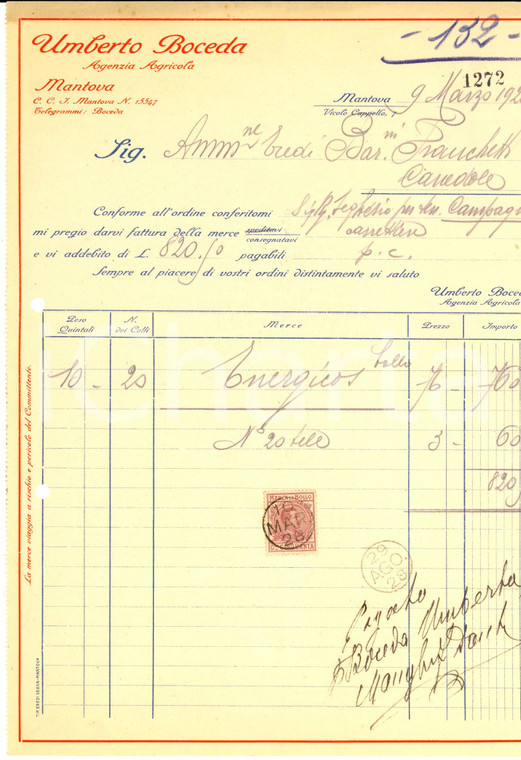 Umberto Boceda
Agenzia Agricola
Mantova
C. C. I. Mantova N. 15547
Telegrammi: Boceda
- 132 -
1272
Mantova 9 Marzo 192
Vicolo Cappello, 1
Sig. Amm.ne Eredi Bar.ni Franchetti
Canedole
Conforme all'ordine conferitomi
mi pregio darvi fattura della merce speditavi
consegnatavi
e vi addebito di £. 820.50 pagabili p.c.
Sempre al piacere di vostri ordini distintamente vi saluto
Umberto Boceda
Agenzia Agricola
Peso Quintali N. dei Colli Merce Prezzo Importo
10 - 20 Energicos 76 - 760
bollo
N° 20 tele 3 - 60
820
MARCA DA BOLLO
10
MAR
28
29
AGO.
28
Pagato
Boceda Umberto
La merce viaggia a rischio e pericolo del Committente.
TIP. EREDI SEGNA-MANTOVA